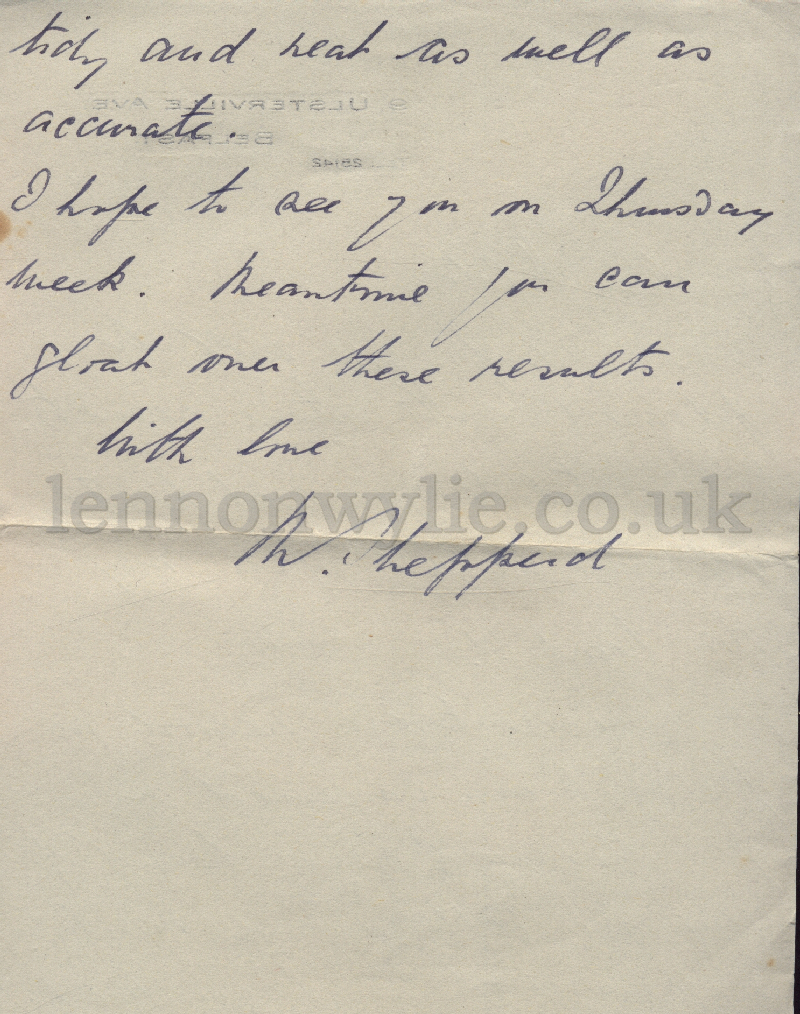 tidy and neat as well as
9 ULSTERVILLE AVE
accurate.
BELFAST
28142
I hope to see you on Thursday
week. Meantime you can
gloat over these results.
With love
lennonwylie.co.uk
M. Shepperd